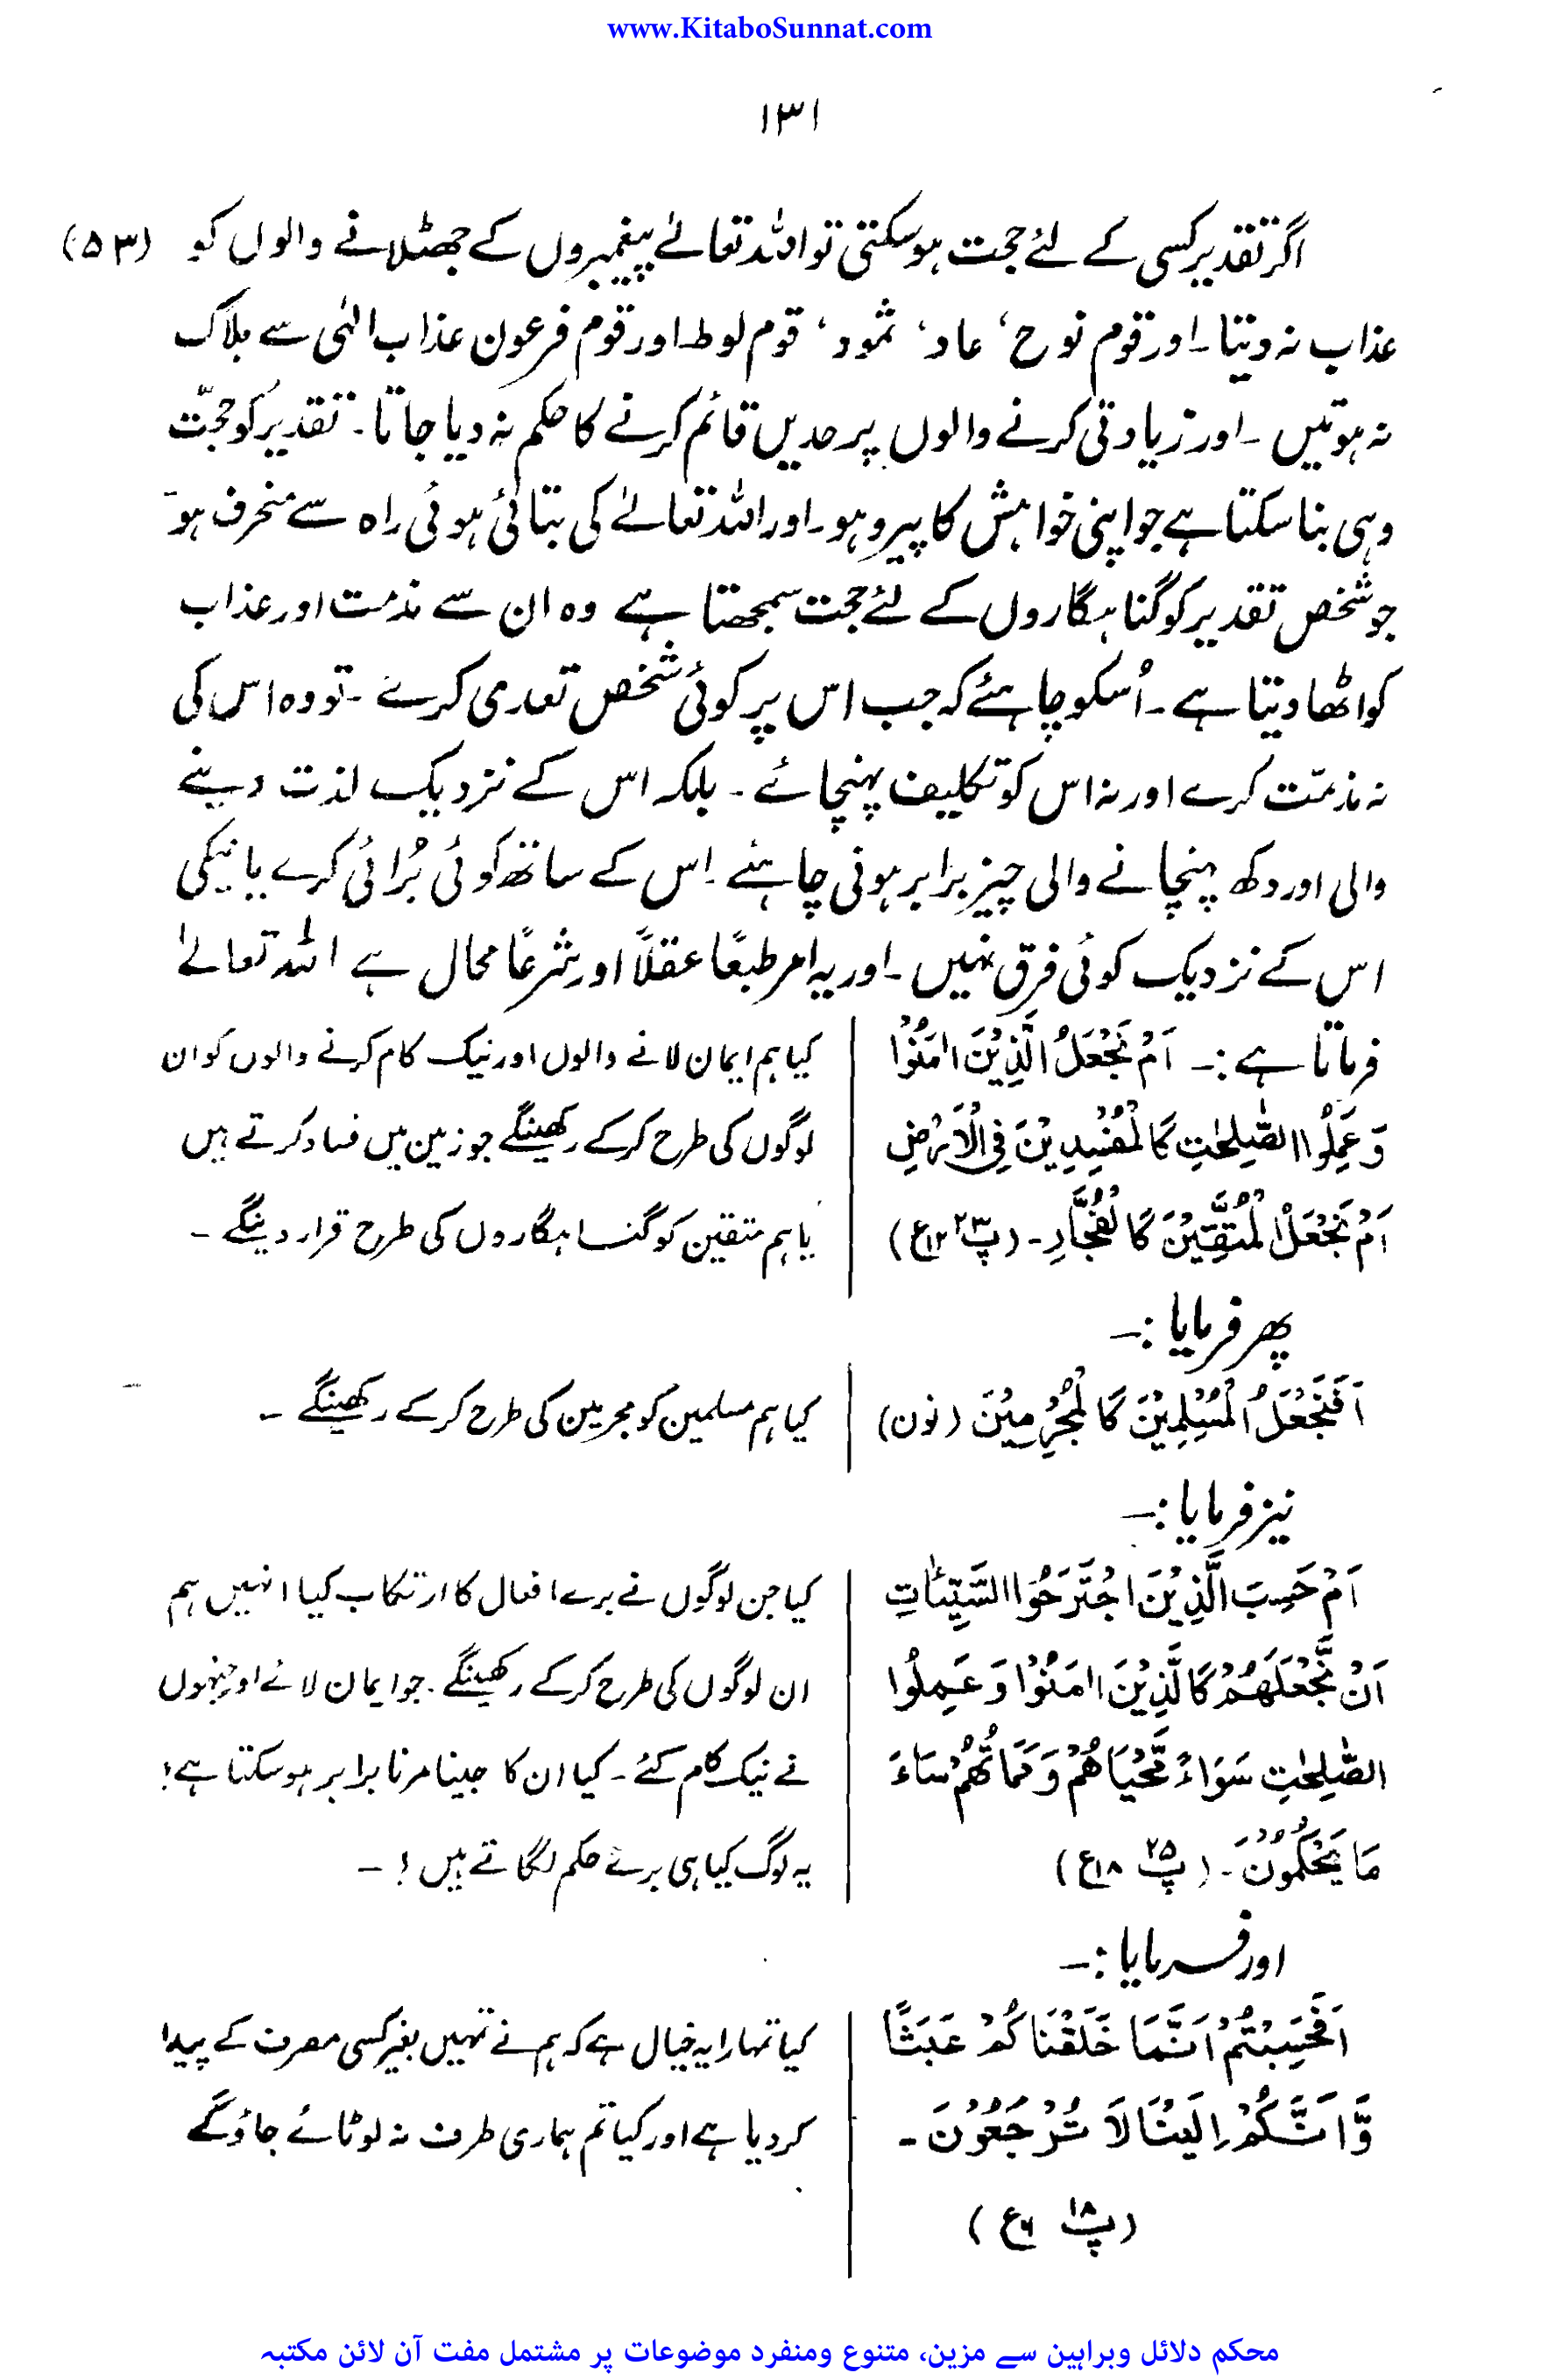 www.KitaboSunnat.com
۱۳۱
اگر تقدیر کسی کے لئے حجت ہو سکتی تو اللہ تعالےٰ پیغمبروں کے جھٹلانے والوں کو (۵۳)
عذاب نہ دیتا۔ اور قوم نوح، عاد، ثمود، قوم لوط اور قوم فرعون عذاب الٰہی سے ہلاک
نہ ہوتیں ۔ اور زیادتی کرنے والوں پر حدیں قائم کرنے کا حکم نہ دیا جاتا۔ تقدیر کو حجّت
وہی بنا سکتا ہے جو اپنی خواہش کا پیرو ہو۔ اور اللہ تعالےٰ کی بتائی ہوئی راہ سے منحرف ہو
جو شخص تقدیر کو گناہگاروں کے لئے حجت سمجھتا ہے وہ ان سے مذمت اور عذاب
کو اٹھا دیتا ہے۔ اُسکو چاہئے کہ جب اس پر کوئی شخص تعدی کرے ۔ تو وہ اس کی
نہ مذمّت کرے اور نہ اس کو تکلیف پہنچائے ۔ بلکہ اس کے نزدیک لذت دینے
والی اور دکھ پہنچانے والی چیز برابر ہونی چاہئے ۔ اس کے ساتھ کوئی بُرائی کرے یا نیکی
اس کے نزدیک کوئی فرق نہیں ۔ اور یہ امر طبعًا عقلاً اور شرعًا محال ہے اللہ تعالےٰ
فرماتا ہے :۔ اَمْ نَجْعَلُ الَّذِیْنَ اٰمَنُوْا
وَعَمِلُوا الصّٰلِحٰتِ کَالْمُفْسِدِیْنَ فِی الْاَرْضِ
اَمْ نَجْعَلُ الْمُتَّقِیْنَ کَالْفُجَّارِ۔ (پ۲۳ ع۱۲)
کیا ہم ایمان لانے والوں اور نیک کام کرنے والوں کو ان
لوگوں کی طرح کرکے رکھینگے جو زمین میں فساد کرتے ہیں
یا ہم متقین کو گنہاہگاروں کی طرح قرار دینگے ۔
پھر فرمایا :۔
اَفَنَجْعَلُ الْمُسْلِمِیْنَ کَالْمُجْرِمِیْنَ (نون)
کیا ہم مسلمین کو مجرمین کی طرح کرکے رکھینگے ۔
نیز فرمایا :۔
اَمْ حَسِبَ الَّذِیْنَ اجْتَرَحُوا السَّیِّئٰاتِ
اَنْ نَّجْعَلَھُمْ کَالَّذِیْنَ اٰمَنُوْا وَعَمِلُوا
الصّٰلِحٰتِ سَوَاءً مَّحْیَاھُمْ وَمَمَاتُھُمْ سَاءَ
مَا یَحْکُمُوْنَ۔ (پ۲۵ ع۱۸)
کیا جن لوگوں نے برے افعال کا ارتکاب کیا انہیں ہم
ان لوگوں کی طرح کرکے رکھینگے ۔ جو ایمان لائے اور جنہوں
نے نیک کام کئے ۔ کیا ان کا جینا مرنا برابر ہو سکتا ہے!
یہ لوگ کیا ہی برے حکم لگاتے ہیں! ۔
اور فرمایا :۔
اَفَحَسِبْتُمْ اَنَّمَا خَلَقْنَاکُمْ عَبَثًا
وَّاَنَّکُمْ اِلَیْنَا لَا تُرْجَعُوْنَ ۔
(پ۱۸ ع۶)
کیا تمہارا یہ خیال ہے کہ ہم نے تمہیں بغیر کسی مصرف کے پیدا
کر دیا ہے اور کیا تم ہماری طرف نہ لوٹائے جاؤ گے
محکم دلائل وبراہین سے مزین، متنوع ومنفرد موضوعات پر مشتمل مفت آن لائن مکتبہ